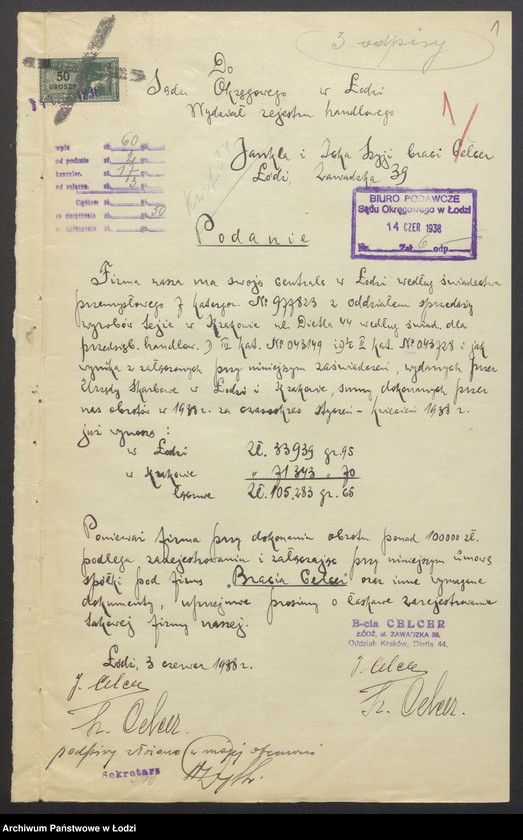 3 odpisy
1
50
GROSZY
Do
Sądu Okręgowego w Łodzi
Wydział rejestru handlowego
1/
Jankla i Icka Szyji braci Celcer
Łódź, Zawadzka 39
wpis zł. 60 gr.
od podania zł. 4 gr.
kanceler. zł. 17 gr.
od załącz. zł. 3 gr.
Ogółem zł. gr.
za doręczenie zł. gr. 50
za ogłoszenie zł. gr.
BIURO PODAWCZE
Sądu Okręgowego w Łodzi
14 CZER 1938
Nr. Zał 6 odp.
Podanie
Firma nasza ma swoją centralę w Łodzi według świadectwa
przemysłowego 7 kategor. No 977823 z oddziałem sprzedaży
wyrobów tejże w Krakowie ul. Dietla 44 według świad. dla
przedsięb. handlow. III kat. No 043149 II kat. No 043728 i jak
wynika z załączonych przy niniejszym zaświadczeń, wydanych przez
Urzędy Skarbowe w Łodzi i Krakowie, sumy dokonanych przez
nas obrotów w 1938 r. za czasookres styczeń – kwiecień 1938 r.
już wynoszą:
w Łodzi zł. 33939 gr. 95
w Krakowie " 71343 " 70
łącznie zł. 105.283 gr. 65
Ponieważ firma przy dokonaniu obrotu ponad 100000 zł.
podlega zarejestrowaniu i załączając przy niniejszym umowę
spółki pod firmą "Bracia Celcer" oraz inne wymagane
dokumenty, uprzejmie prosimy o łaskawe zarejestrowanie
takowej firmy naszej.
B-cia CELCER
ŁÓDŹ, ul. ZAWADZKA 39.
Oddział: Kraków, Dietla 44.
Łódź, 3 czerwca 1938 r.
J. Celcer
J. Celcer
Sz. Celcer.
Sz. Celcer.
podpisy złożono w mojej obecności
Sekretarz
Archiwum Państwowe w Łodzi